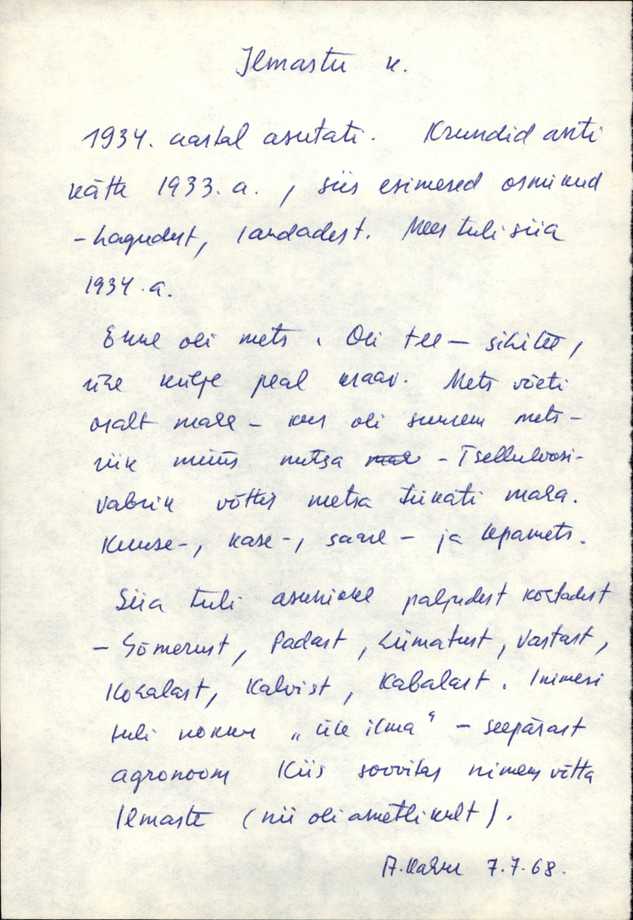 Ilmastu k.
1934. aastal asutati. Krundid anti
kätte 1933. a., siis esimesed osmikud
- hagudest, laudadest. Mees tuli siia
1934. a.
Enne oli mets. Oli tee - sihitee,
ühe külje peal kraav. Mets võeti
osalt maha - kus oli suurem mets -
riik müüs metsa - Tselluloosi-
vabrik võttis metsa tükati maha.
Kuuse-, kase-, saare- ja lepamets.
Siia tuli asunikke paljudest kohtadest
- Sõmerust, Padast, Liimatust, Vastast,
Kohalast, Kalvist, Kabalast. Inimesi
tuli kokku "üle ilma" - seepärast
agronoom Kiis soovitas nimeks võtta
Ilmaste (nii oli ametlikult).
7.7.68.